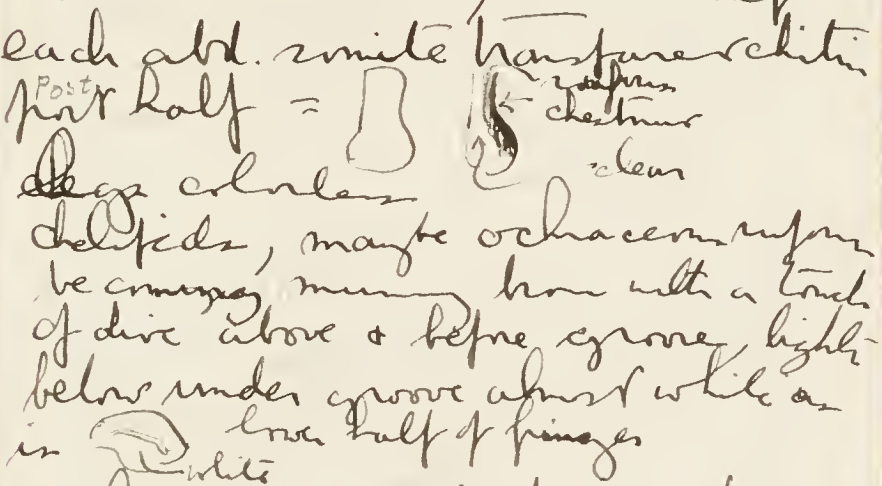 each abd. somite transparent chitin
Post
post half =
rufous
chestnut
clear
legs colorless
chelipeds, maybe ochraceous rufous
becoming mummy brown with a touch
of olive above & before groove, light
below under groove almost white as
is lower half of finger
white